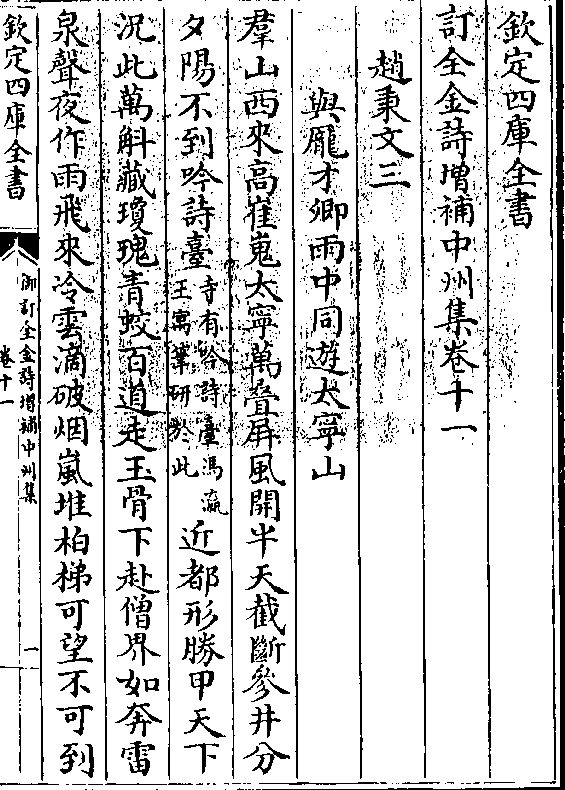 欽定四庫全書
訂全金詩增補中州集卷十一
趙秉文三
與龐才卿雨中同遊太寧山
羣山西來高崔嵬太寧萬疊屏風開半天截斷參井分
夕陽不到吟詩臺寺有吟詩臺馮瀛王寓筆研於此近都形勝甲天下
況此萬斛藏瓊瑰青蛟百道走玉骨下赴僧界如奔雷
泉聲夜作雨飛來冷雲滴破烟嵐堆柏梯可望不可到
欽定四庫全書
御訂全金詩增補中州集
卷十一
一